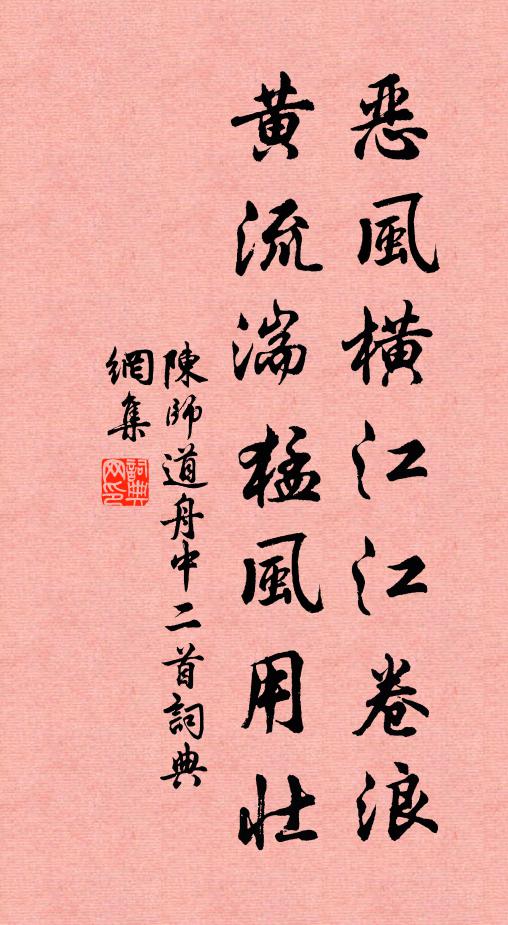 恶風橫江江卷浪
黄流湍猛風用壮
陳師道舟中二首詞典
網集
詞典
网印